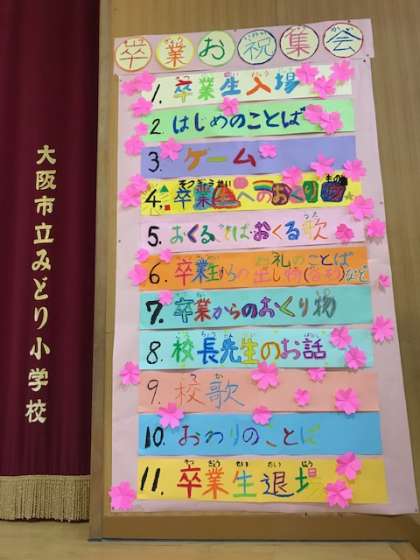 卒業お祝集会
1. 卒業生入場
2 はじめのことば
3 ゲーム
4, 卒業生へのおくり物
5. おくることば・おくる歌
6. 卒業生からのお礼のことば
出し物 など
7. 卒業からのおくり物
8. 校長先生のお話
9. 校歌
10. おわりのことば
11. 卒業生退場
大阪市立みどり小学校